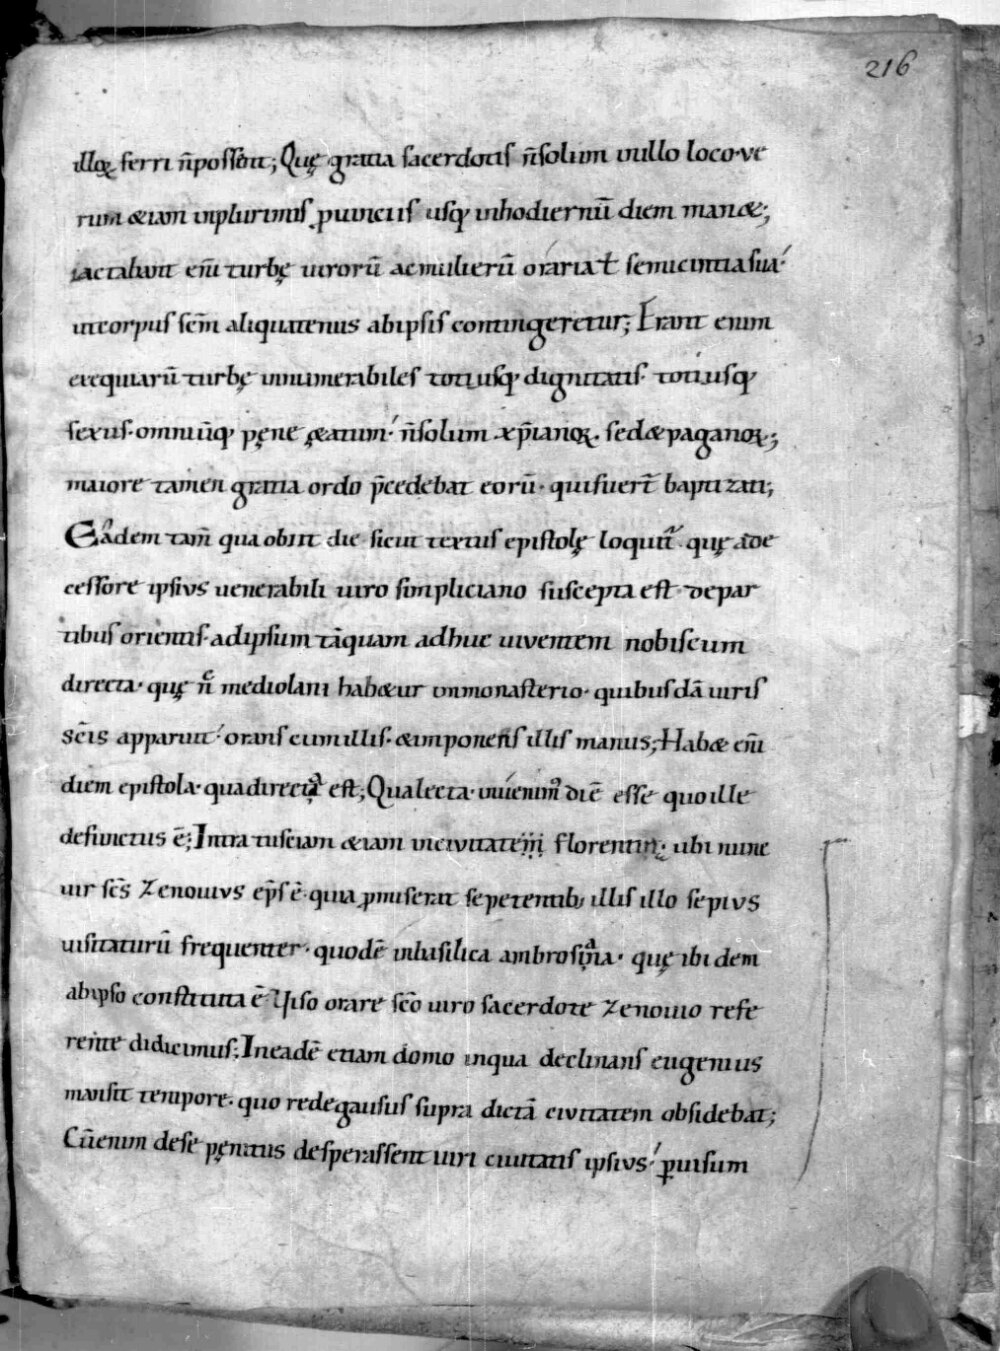 216
illoꝝ ferri n̄possent; Quę gratia sacerdotis n̄solum in illo loco· ve
rum &iam inplurimis ꝓvinciis usq; inhodiernū diem man&;
iactabant em̄ turbę virorū ac mulierū oraria ł semicintia sua·
ut corpus scm̄ aliquatenus abipsis contingeretur; Erant enim
exequiarū turbę innumerabiles totiusq; dignitatis· totiusq;
sexus· omniūq; pęne ę&atum· n̄solum xp̄ianoꝝ· sed& paganoꝝ;
maiore tamen gratia ordo p̄cedebat eorū· qui fuer̄t baptizati;
Eadem tam̄ qua obiit die sicut textus epistolę loquit᷑· quę a de
cessore ipsius venerabili viro simpliciano suscepta est· de par
tibus orientis· ad ipsum tāquam adhuc viventem nobiscum
directa· quę n̄c mediolani hab&ur in monasterio· quibusdā viris
sc̄is apparuit· orans cum illis· &imponens illis manus; Hab& em̄
diem epistola· qua directa est; Qua lecta· invenim᷒ diē esse quo ille
defunctus ē; Intra tusciam &iam in civitatem florentinā· ubi nunc
vir sc̄s zenovius ep̄s ē· quia ꝓmiserat se petentib; illis illo sepius
visitaturū frequenter· quodē in basilica ambrosiana· quę ibi dem
ab ipso constituta ē Viso orare sc̄o viro sacerdote zenovio refe
rente didicimus; In eadē etiam domo in qua declinans eugenius
mansit tempore· quo redegausus supra dictā civitatem obsidebat;
Cūenim dese pęnitus desperassent viri civitatis ipsius· ꝑ visum